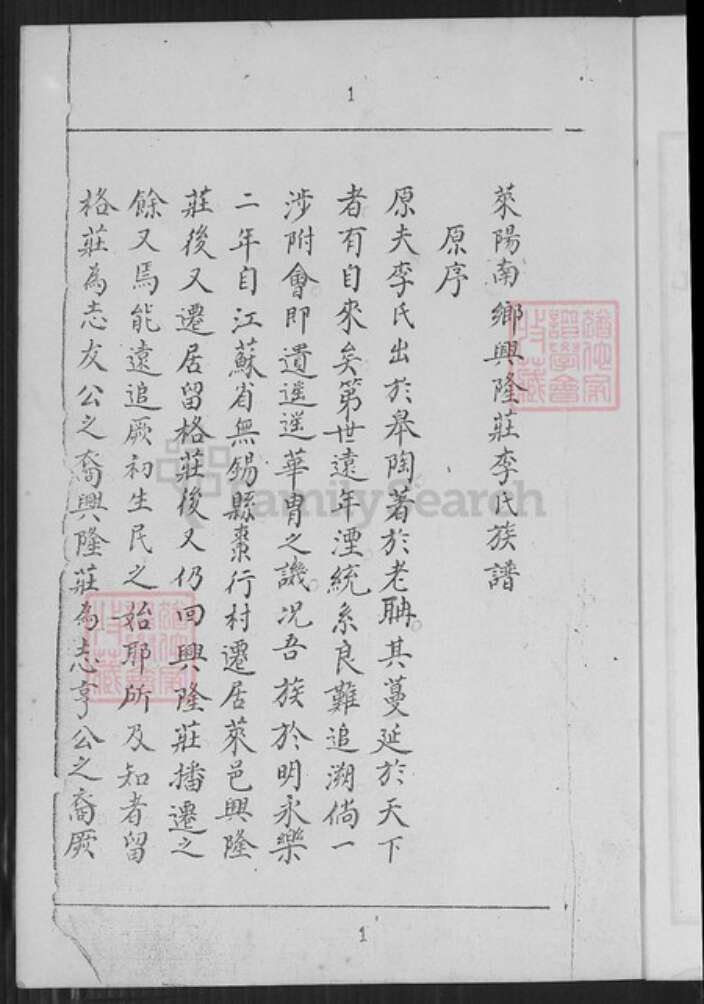 1
萊陽南鄉興隆莊李氏族譜
原序
原夫李氏出於皋陶著於老聃其蔓延於天下
者有自來矣第世遠年湮統系良難追溯倘一
涉附會即遺遥遥華胄之譏况吾族於明永樂
二年自江蘇省無錫縣棗行村遷居萊邑興隆
莊後又遷居留格莊後又仍回興隆莊播遷之
餘又焉能遠追厥初生民之始耶所及知者留
格莊為志友公之裔興隆莊為志亨公之裔厥
1
FamilySearch